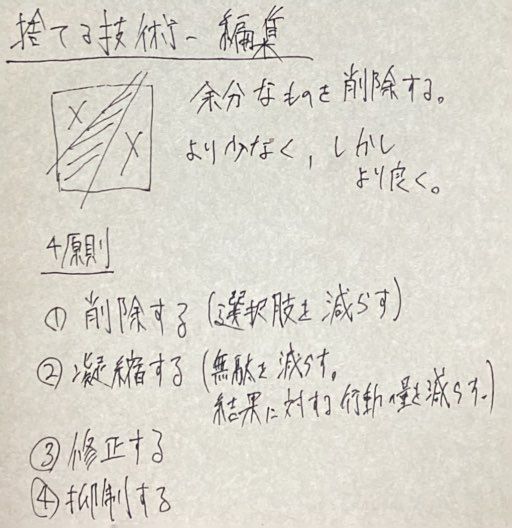 捨てる技術－編集
余分なものを削除する。
より少なく，しかし
より良く。
4原則
① 削除する (選択肢を減らす)
② 凝縮する (無駄を減らす。
結果に対する行動の量を減らす。)
③ 修正する
④ 抑制する